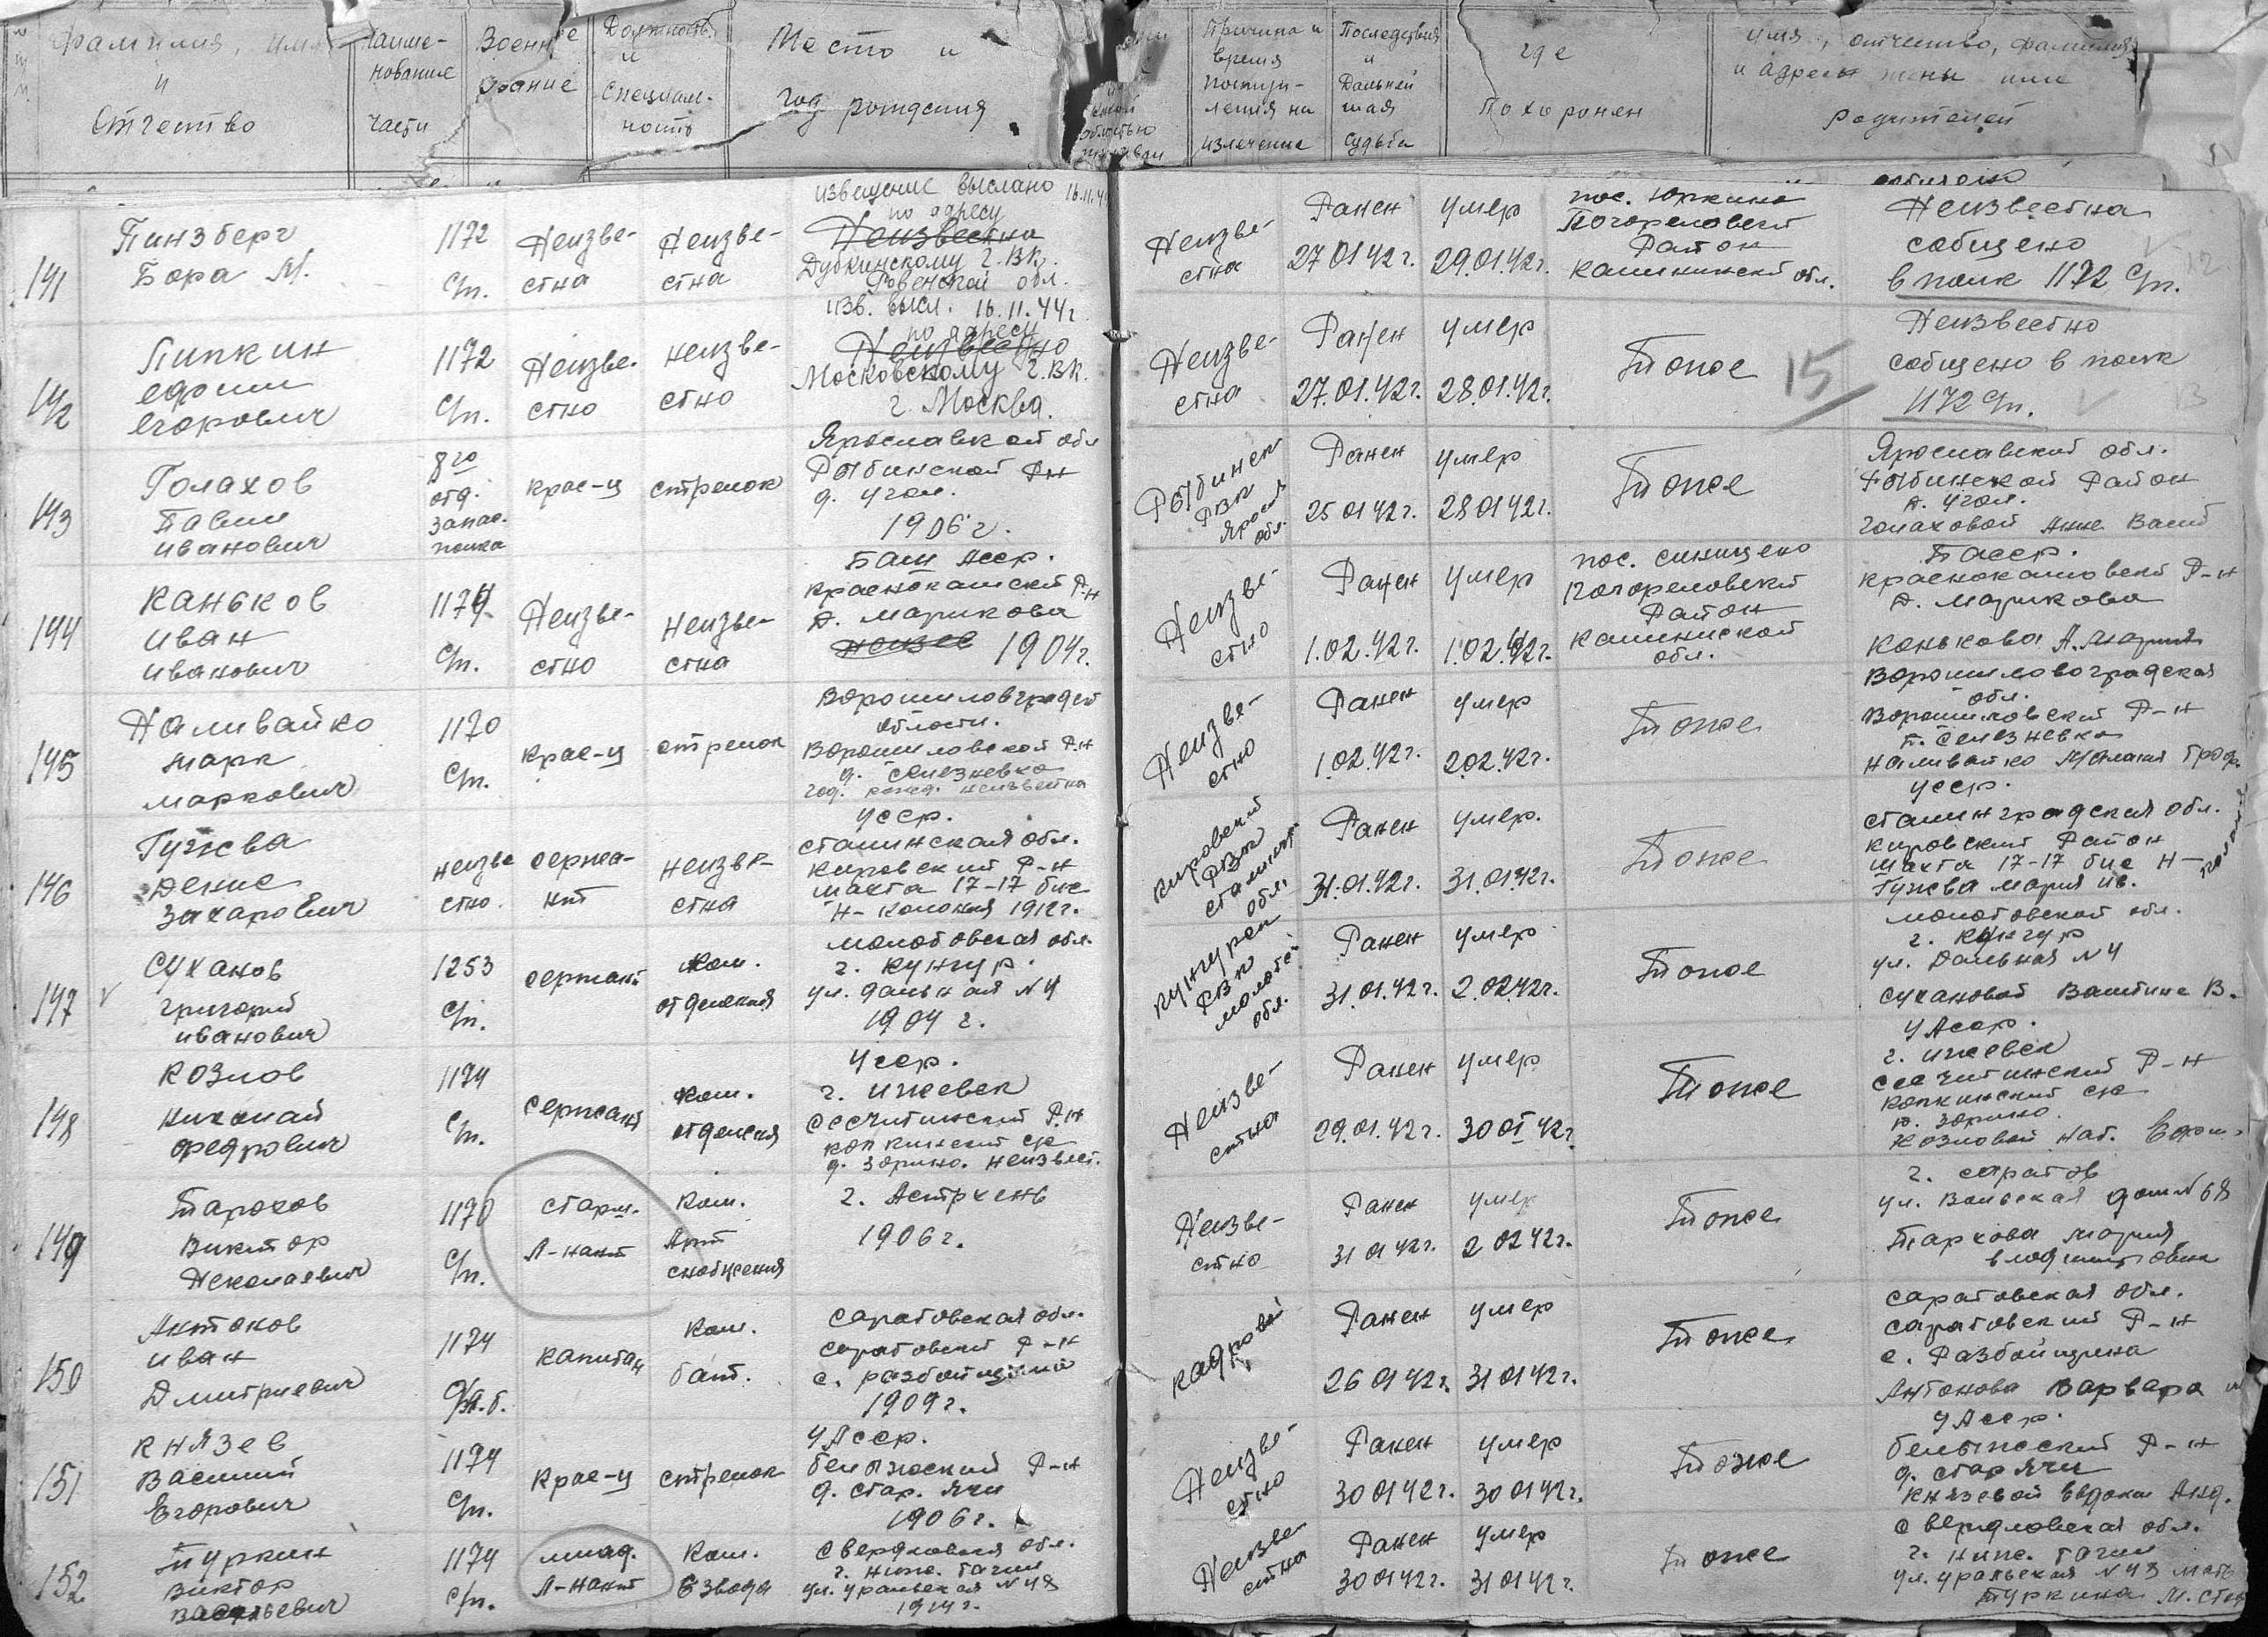 Фамилия, имя
и
Отчество
Наиме-
нование
части
Военное
звание
Должность
и
специаль-
ность
Место и
год рождения
Причина и
время
поступ-
ления на
излечение
Последствия
и
Дальней
шая
судьба
где
похоронен
имя, отчество, фамилия
и адрес жены или
родителей
141
Пинзберг
Бора М.
1172
с/п.
Неизве-
стна
Неизве-
стна
извещение выслано 16.11.44
по адресу
Неизвестна
Дубкинскому г.ВК.
Ровенской обл.
Неизве-
стна
Ранен
27 01 42 г.
умер
29.01.42г.
пос. Юркино
Погореловский
Район
Калининской обл.
Неизвестна
собщено
в полк 1172 с/п.
142
Пипкин
ефим
егорович
1172
с/п.
Неизве-
стно
неизве-
стно
изв. высл. 16.11.44г
по адресу
Неизвестно
Московскому г.ВК.
г. Москва.
Неизве-
стна
Ранен
27.01.42г.
умер
28.01.42г.
Тоже
15
Неизвестно
собщено в полк
1172 с/п.
143
Голахов
Павил
иванович
8го
отд.
запас.
полка
крас-ц
стрелок
Ярославской обл
Рыбинской Рн
д. угол.
1906г.
Рыбинск
РВК
Яросл
обл.
Ранен
25 01 42 г.
умер
28 01 42г.
Тоже
Ярославской обл.
Рыбинской Район
д. угол.
Голаховой Анне Васил
144
Каньков
иван
иванович
1174
с/п.
Неизве-
стно
Неизве-
стна
Баш Асср.
Краснокамской Р-н
д. Марикова
неизве 1904г.
Неизве-
стно
Ранен
1.02.42г.
умер
1.02.42г.
пос. синицено
Погореловский
Район
Калиниской
обл.
Басср.
краснокамовский Р-н
д. Марикова
Канькова А.Мария
145
Наливайко
Марк
Маркович
1170
с/п.
крас-ц
стрелок
Ворошиловградской
области.
Ворошиловской Р.н
д. селезневка
год. рожд. неизвестна
Неизве-
стно
Ранен
1.02.42г.
умер
2.02.42г.
Тоже
Ворошиловоградская
обл.
Ворошиловский Р-н
п. селезневка
Наливайко
146
Гужева
Денис
Захарович
неизве
стно.
сержа-
нт
неизве-
стна
усср.
сталинская обл.
кировский Р-н
шахта 17-17 бис
Н- колония 1912г.
кировский
РВК
сталинг.
обл.
Ранен
31.01.42г.
умер.
31.01.42г.
Тоже
усср.
сталинградская обл.
кировский Район
шахта 17-17 бис Н-
колония
Гужева Мария ив.
147
Суханов
григорий
иванович
1253
с/п.
сержант
ком.
отделения
молотовская обл.
г. кунгур.
ул. дальная N 4
1904 г.
кунгурск
РВК
молотс.
обл.
Ранен
31.01.42г.
умер
2.02.42г.
Тоже
молотовской обл.
г. Кунгур
ул. Дальная N 4
Сухановой Валитине В.
148
Козлов
николай
федрович
1174
с/п.
сержант
ком.
отделения
усср.
г. ижевск
Р.н
ск
д. Зорино. неизвест.
Неизве-
стна
Ранен
29.01.42г.
умер
30 01 42г
Тоже
уАсср.
г. ижевск
Р-н
ск
д. Зорино.
Козловой Нат. Ефим.
149
Тарохов
Виктор
Неколаевич
1170
с/п.
старш.
Л-нант
Ком.
Арт
снабжения
г. Астрхень
1906г.
Неизве-
стно
Ранен
31 01 42г.
умер
2 02 42г.
Тоже
г. саратов
ул. Вольская дом N 68
Тархова Мария
владимировна
150
Антонов
иван
Дмитриевич
1174
с/п.
капитан
Ком.
бат.
Саратовская обл.
саратовский Р-н
с. разбойщина
1909г.
кадровой
Ранен
26 01 42г.
умер
31 01 42г.
Тоже
саратовская обл.
саратовский Р-н
с. Разбойщина
Антонова Варвара
151
Князев
Василий
Егорович
1174
с/п.
Крас-ц
стрелок
уАсср.
белыжский Р-н
д. стар. Ячи
1906г.
Неизве-
стно
Ранен
30 01 42г.
умер
30 01 42г.
Тоже
уАсср.
белыжский Р-н
д. стар Ячи
князевой Евдокии Анд.
152
Туркин
Виктор
Васильевич
1174
с/п.
млад.
Л-нант
Ком.
взвода
Свердловская обл.
г. Ниж. Тагил
ул. Уральская N 48
1914г.
Неизве-
стна
Ранен
30 01 42г.
умер
31 01 42г.
Тоже
Свердловская обл.
г. Ниж. Тагил
ул. Уральская N 43 мать
Туркина М. Степ